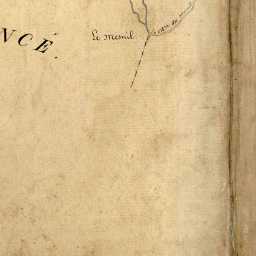 NCÉ.
Le Mesnil